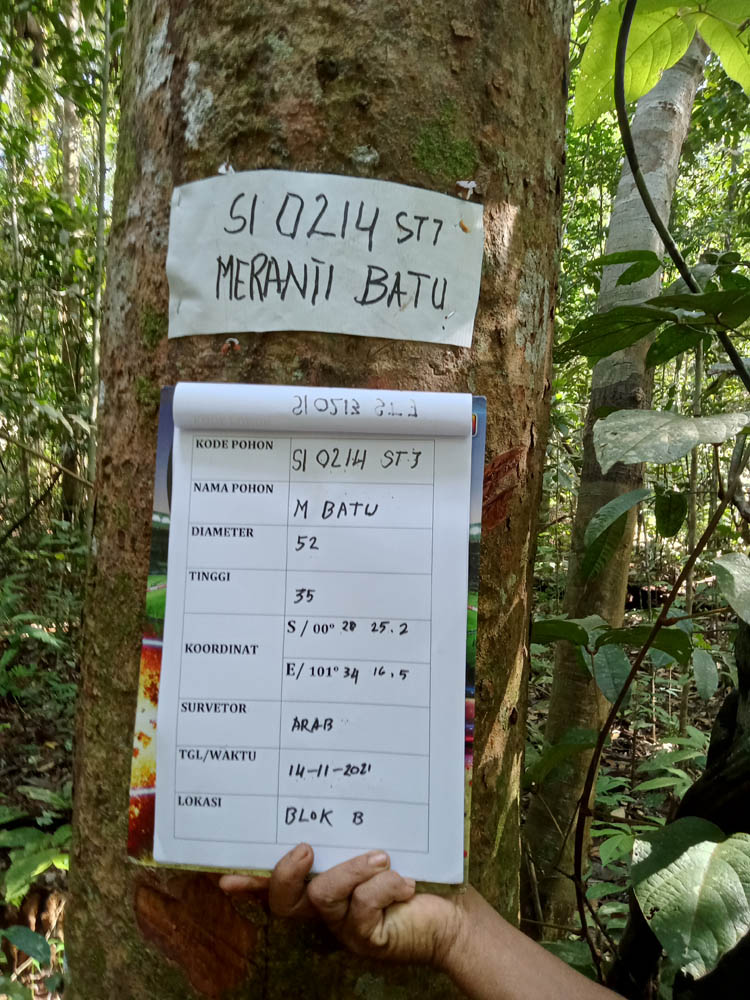 SI 0214 ST7
MERANTI BATU
SI 0213 ST3
KODE POHON SI 0214 ST3
NAMA POHON M BATU
DIAMETER 52
TINGGI 35
KOORDINAT
S / 00° 28 25.2
E/ 101° 34 16.5
SURVETOR ARAB
TGL/WAKTU 14-11-2021
LOKASI BLOK B